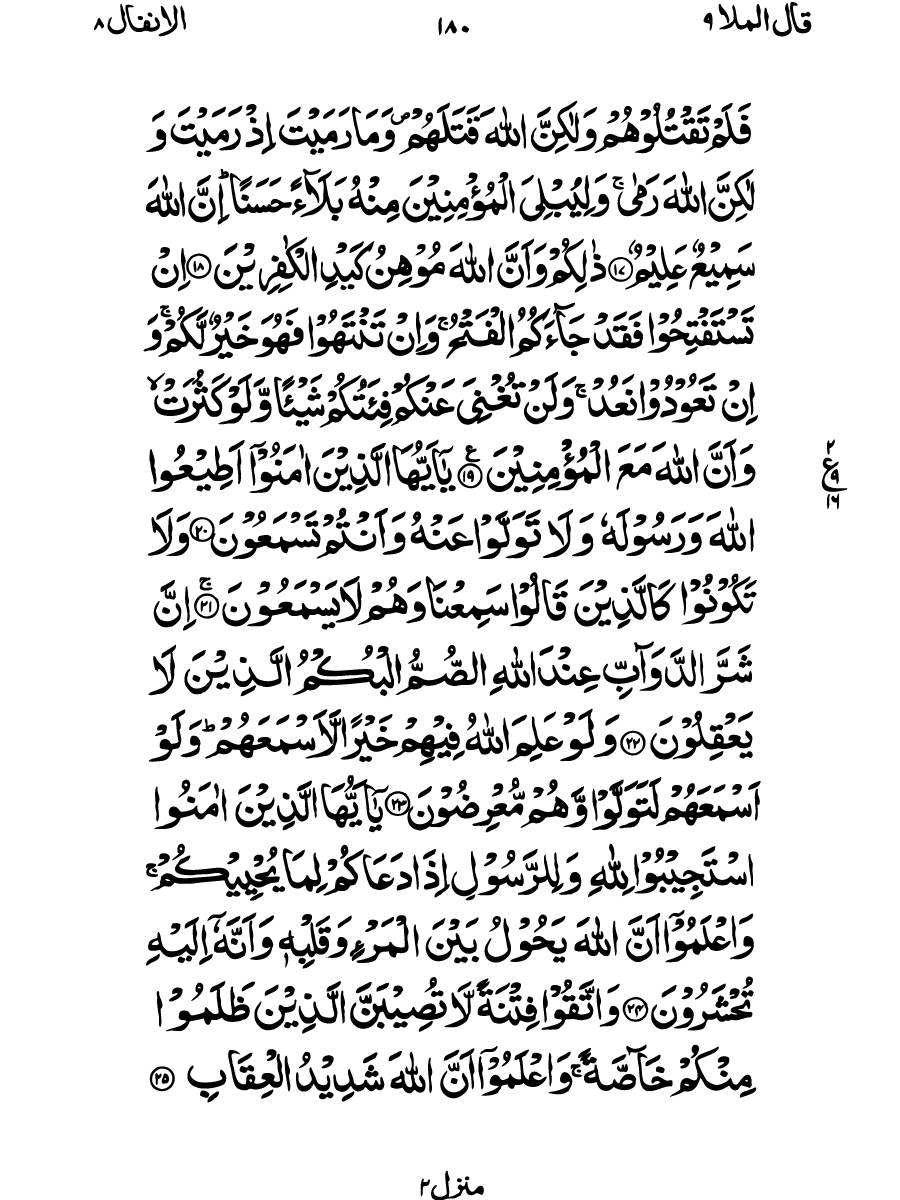 قال الملا ۹
۱۸۰
الانفال ۸
فَلَمْ تَقْتُلُوْهُمْ وَلٰكِنَّ اللّٰهَ قَتَلَهُمْ ۪ وَمَا رَمَيْتَ اِذْ رَمَيْتَ وَ
لٰكِنَّ اللّٰهَ رَمٰى ۚ وَلِيُبْلِىَ الْمُؤْمِنِيْنَ مِنْهُ بَلَآءً حَسَنًا ؕ اِنَّ اللّٰهَ
سَمِيْعٌ عَلِيْمٌ ۝۱۷ ذٰلِكُمْ وَاَنَّ اللّٰهَ مُوْهِنُ كَيْدِ الْكٰفِرِيْنَ ۝۱۸ اِنْ
تَسْتَفْتِحُوْا فَقَدْ جَآءَكُمُ الْفَتْحُ ۚ وَاِنْ تَنْتَهُوْا فَهُوَ خَيْرٌ لَّكُمْ ۚ وَ
اِنْ تَعُوْدُوْا نَعُدْ ۚ وَلَنْ تُغْنِىَ عَنْكُمْ فِئَتُكُمْ شَيْـًٔا وَّلَوْ كَثُرَتْ ۙ
وَاَنَّ اللّٰهَ مَعَ الْمُؤْمِنِيْنَ ۝۱۹ ع يٰۤاَيُّهَا الَّذِيْنَ اٰمَنُوْۤا اَطِيْعُوا
۲
ع
۹
۱۶
اللّٰهَ وَرَسُوْلَهٗ وَلَا تَوَلَّوْا عَنْهُ وَاَنْتُمْ تَسْمَعُوْنَ ۝۲۰ وَلَا
تَكُوْنُوْا كَالَّذِيْنَ قَالُوْا سَمِعْنَا وَهُمْ لَا يَسْمَعُوْنَ ۝۲۱ ۚ اِنَّ
شَرَّ الدَّوَآبِّ عِنْدَ اللّٰهِ الصُّمُّ الْبُكْمُ الَّذِيْنَ لَا
يَعْقِلُوْنَ ۝۲۲ وَلَوْ عَلِمَ اللّٰهُ فِيْهِمْ خَيْرًا لَّاَسْمَعَهُمْ ؕ وَلَوْ
اَسْمَعَهُمْ لَتَوَلَّوْا وَّهُمْ مُّعْرِضُوْنَ ۝۲۳ يٰۤاَيُّهَا الَّذِيْنَ اٰمَنُوا
اسْتَجِيْبُوْا لِلّٰهِ وَلِلرَّسُوْلِ اِذَا دَعَاكُمْ لِمَا يُحْيِيْكُمْ ۚ
وَاعْلَمُوْۤا اَنَّ اللّٰهَ يَحُوْلُ بَيْنَ الْمَرْءِ وَقَلْبِهٖ وَاَنَّهٗۤ اِلَيْهِ
تُحْشَرُوْنَ ۝۲۴ وَاتَّقُوْا فِتْنَةً لَّا تُصِيْبَنَّ الَّذِيْنَ ظَلَمُوْا
مِنْكُمْ خَآصَّةً ۚ وَاعْلَمُوْۤا اَنَّ اللّٰهَ شَدِيْدُ الْعِقَابِ ۝۲۵
منزل ۲